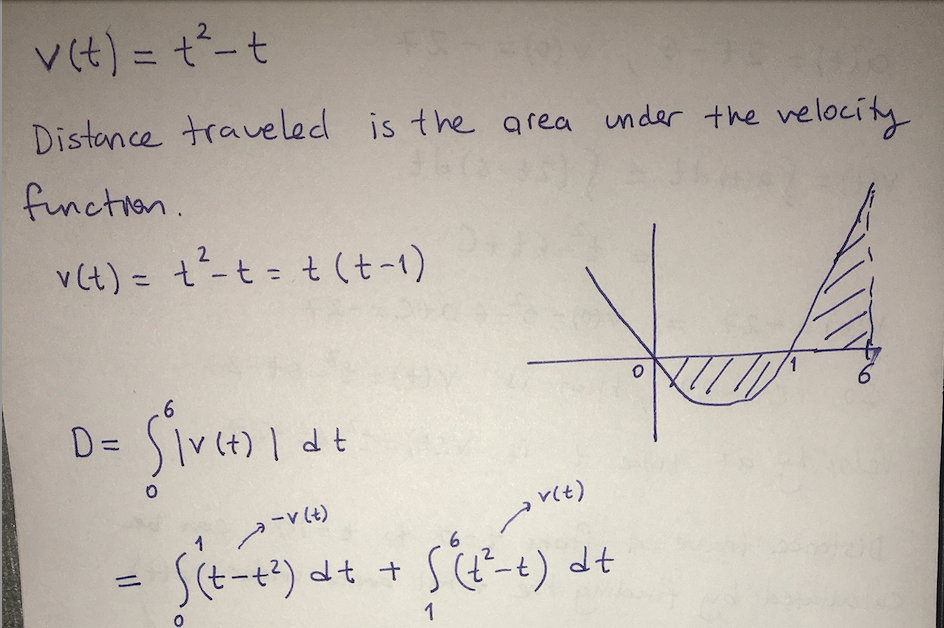 v(t) = t²-t
Distance traveled is the area under the velocity
function.
v(t) = t²-t = t(t-1)
0 1 6
D = ∫₀⁶ |v(t)| dt
→ -v(t) → v(t)
= ∫₀¹ (t-t²) dt + ∫₁⁶ (t²-t) dt